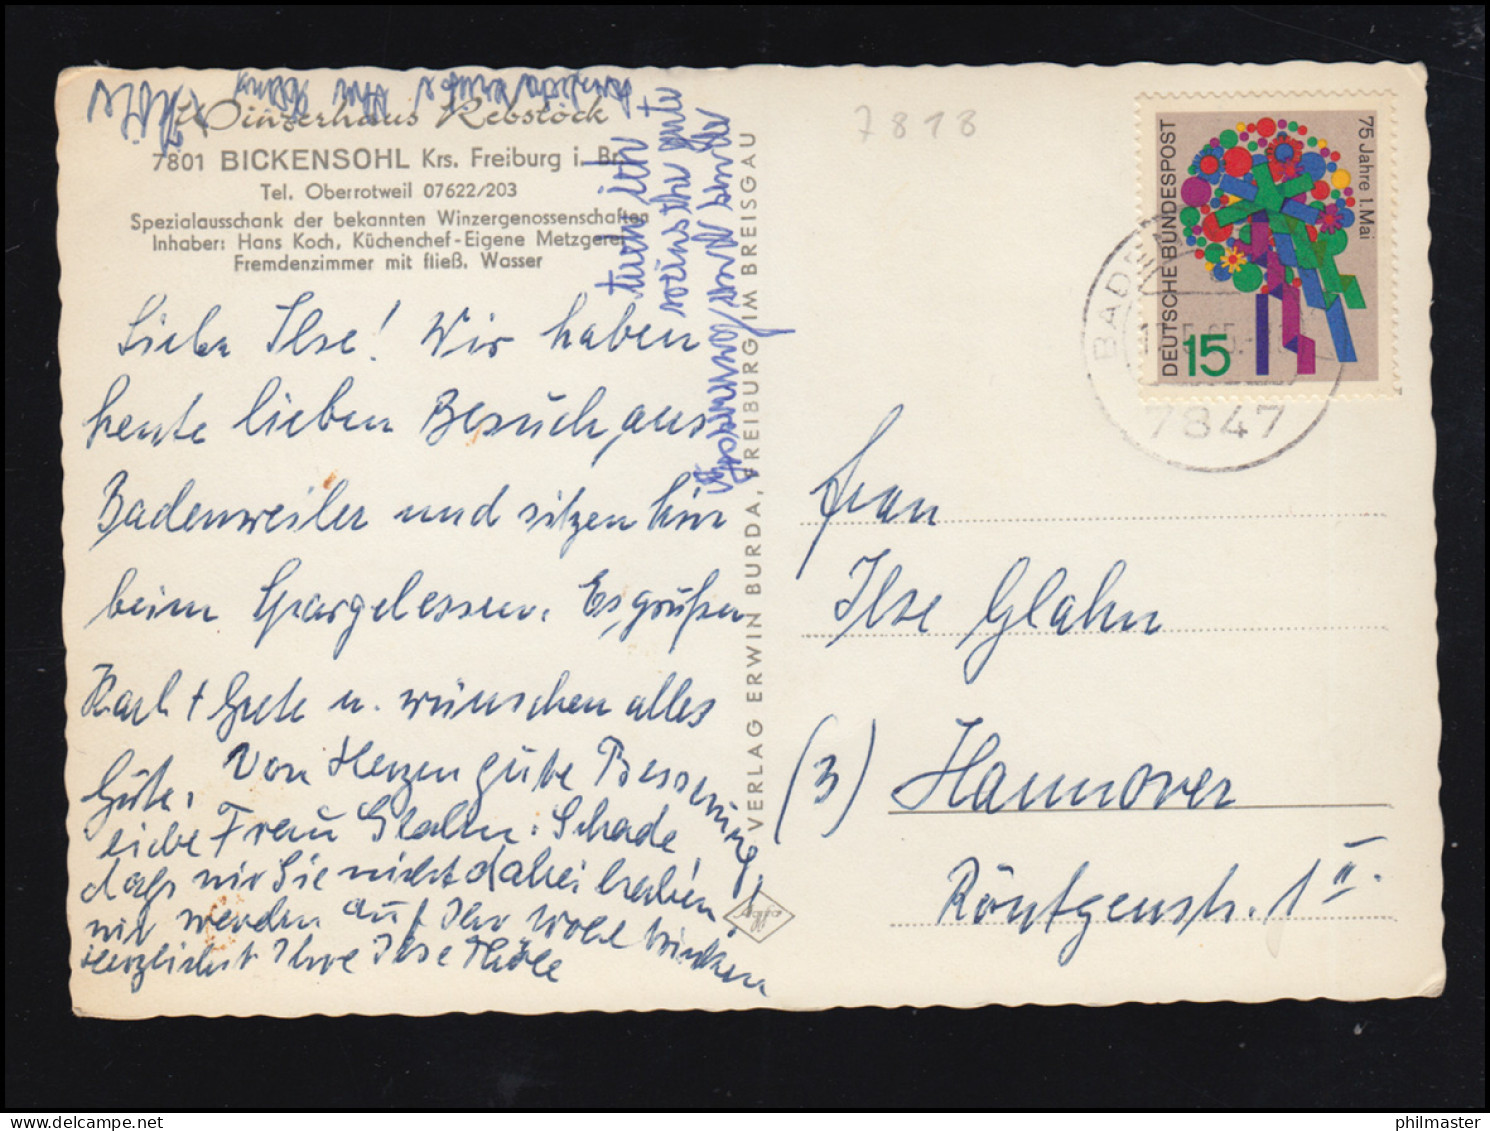 Winzerhaus Rebstock
7801 BICKENSOHL Krs. Freiburg i. Br.
Tel. Oberrotweil 07622/203
Spezialausschank der bekannten Winzergenossenschaften
Inhaber: Hans Koch, Küchenchef - Eigene Metzgerei
Fremdenzimmer mit fließ. Wasser
Liebe Ilse! Wir haben
heute lieben Besuch aus
Badenweiler und sitzen hier
beim Spargelessen. Es grüßen
Karl + Grete u. wünschen alles
Gute.
Von Herzen gute Besserung,
liebe Frau Glahn. Schade
daß wir Sie nicht dabei haben,
wir werden auf Ihr Wohl trinken
herzlichst Ihre Ilse
Auch ich
wünsche gute
Besserung und sende
VERLAG ERWIN BURDA, FREIBURG IM BREISGAU
7818
75 Jahre 1. Mai
DEUTSCHE BUNDESPOST
15
BADE
7847
Frau
Ilse Glahn
(3) Hannover
Röntgenstr. 1 II.
philmaster